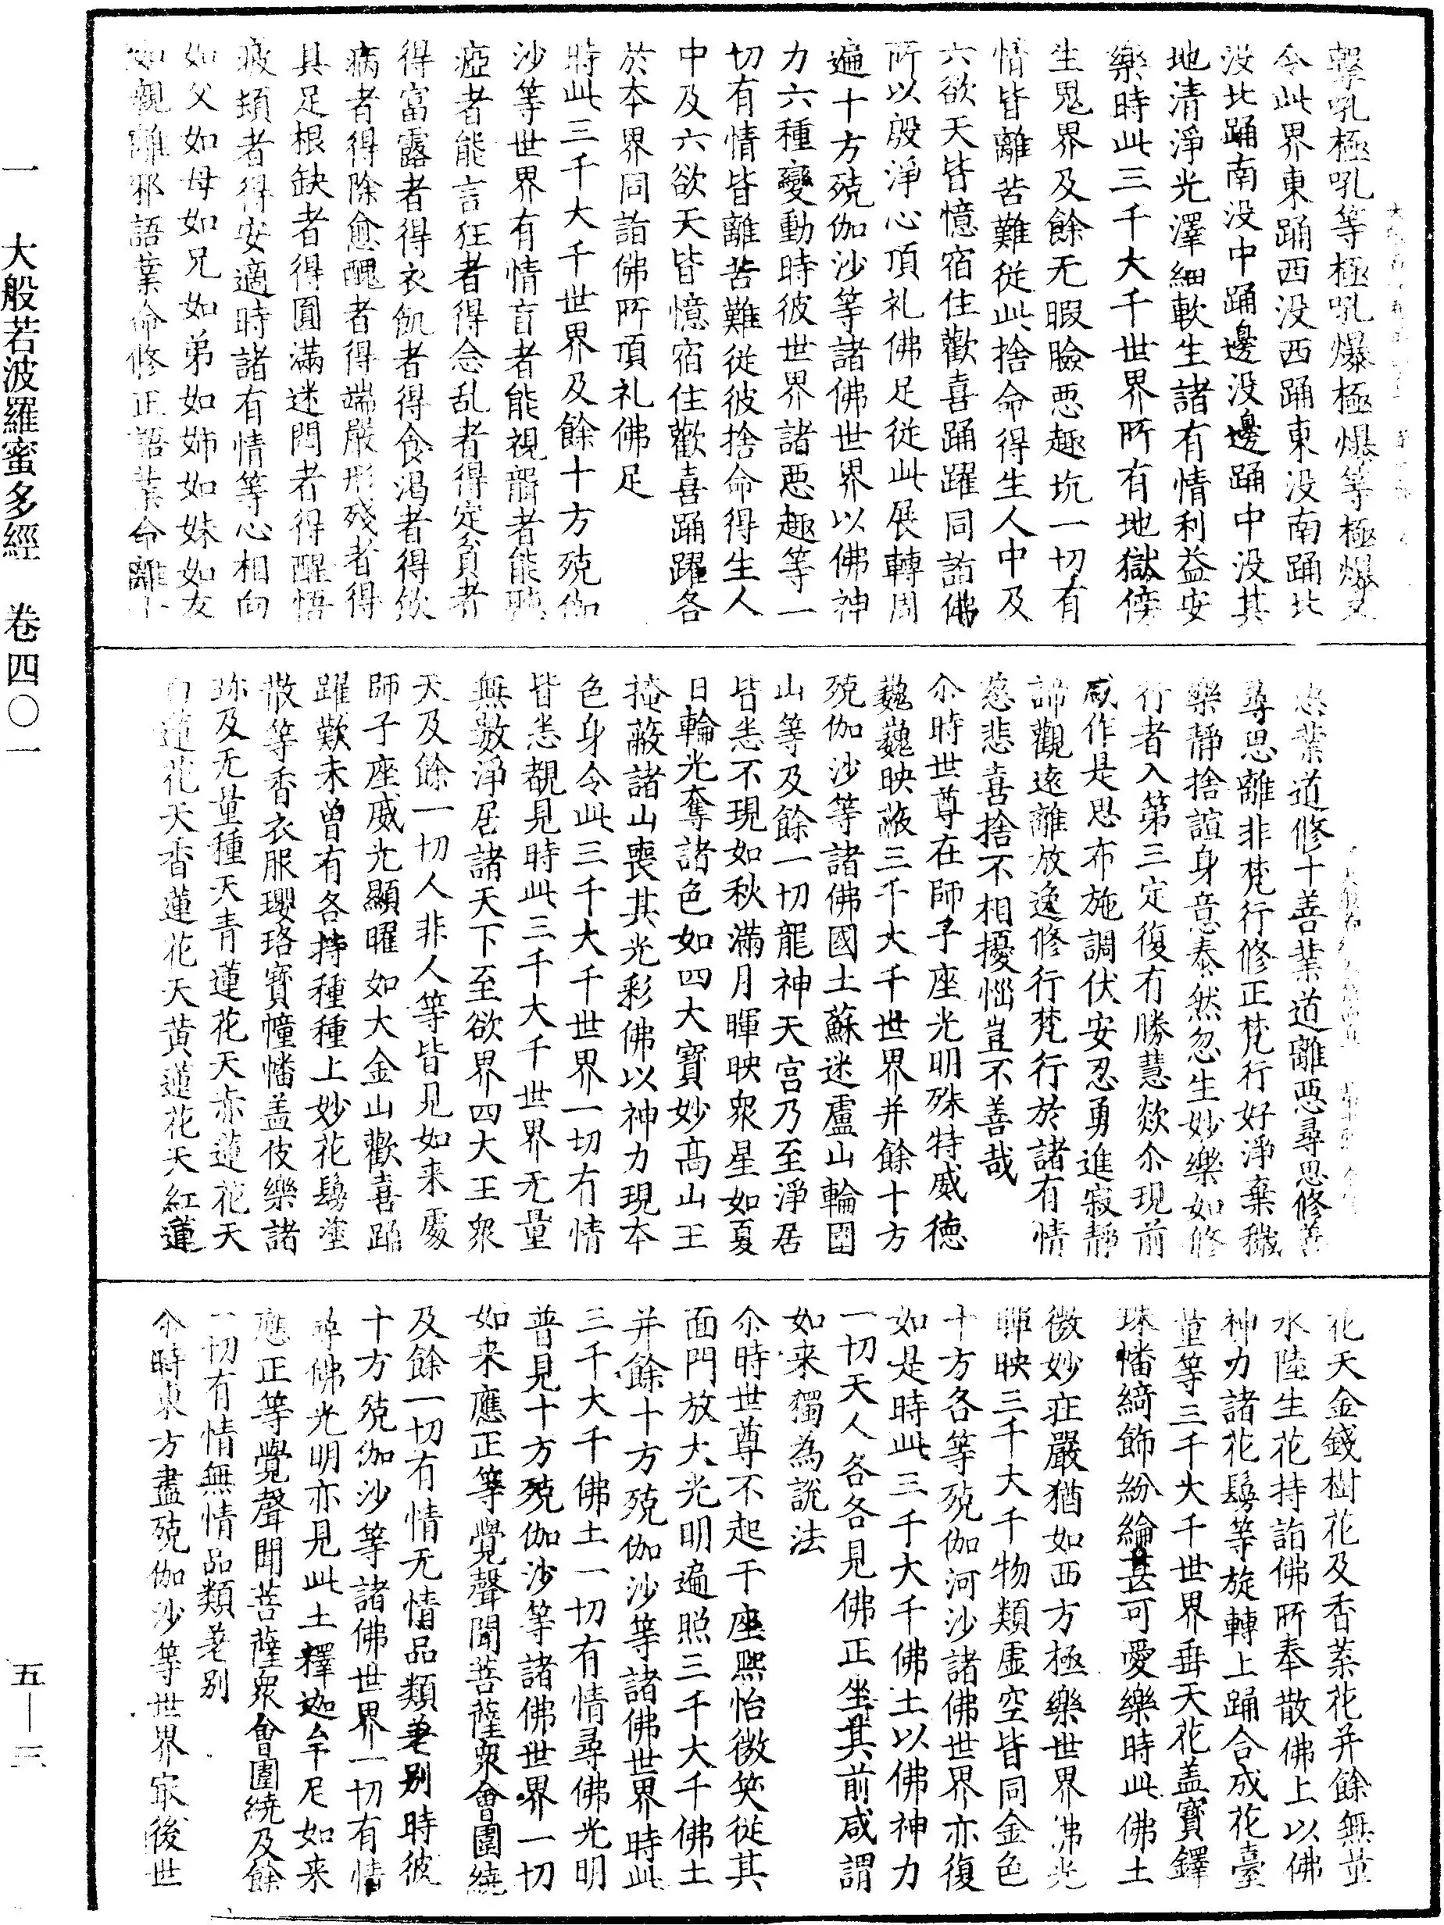 擊吼極吼等極吼爆極爆等極爆又
令此界東踊西没西踊東没南踊北
没北踊南没中踊邊没邊踊中没其
地清淨光澤細軟生諸有情利益安
樂時此三千大千世界所有地獄傍
生鬼界及餘无暇險惡趣坑一切有
情皆離苦難從此捨命得生人中及
六欲天皆憶宿住歡喜踊躍同詣佛
所以殷淨心頂礼佛足從此展轉周
遍十方殑伽沙等諸佛世界以佛神
力六種變動時彼世界諸惡趣等一
切有情皆離苦難從彼捨命得生人
中及六欲天皆憶宿住歡喜踊躍各
於本界同詣佛所頂礼佛足
時此三千大千世界及餘十方殑伽
沙等世界有情盲者能視聾者能聽
瘂者能言狂者得念乱者得定貧者
得富露者得衣飢者得食渴者得飲
病者得除愈醜者得端嚴形殘者得
具足根缺者得圓滿迷悶者得醒悟
疲頓者得安適時諸有情等心相向
如父如母如兄如弟如姉如妹如友
如親離邪語業命修正語業命離十
惡業道修十善業道離惡尋思修善
尋思離非梵行修正梵行好淨棄穢
樂靜捨諠身意泰然忽生妙樂如修
行者入第三定復有勝慧欻尒現前
咸作是思布施調伏安忍勇進寂靜
諦觀遠離放逸修行梵行於諸有情
慈悲喜捨不相擾惱豈不善哉
尒時世尊在師子座光明殊特威德
巍巍映蔽三千大千世界并餘十方
殑伽沙等諸佛國土蘇迷盧山輪圍
山等及餘一切龍神天宮乃至淨居
皆悉不現如秋滿月暉映衆星如夏
日輪光奪諸色如四大寶妙高山王
掩蔽諸山喪其光彩佛以神力現本
色身令此三千大千世界一切有情
皆悉覩見時此三千大千世界无量
無數淨居諸天下至欲界四大王衆
天及餘一切人非人等皆見如来處
師子座威光顯曜如大金山歡喜踊
躍歎未曾有各持種種上妙花鬘塗
散等香衣服瓔珞寶幢幡盖伎樂諸
珎及无量種天青蓮花天赤蓮花天
白蓮花天香蓮花天黄蓮花天紅蓮
花天金錢樹花及香葉花并餘無量
水陸生花持詣佛所奉散佛上以佛
神力諸花鬘等旋轉上踊合成花臺
量等三千大千世界垂天花盖寶鐸
珠幡綺飾紛綸甚可愛樂時此佛土
微妙莊嚴猶如西方極樂世界佛光
暉映三千大千物類虚空皆同金色
十方各等殑伽河沙諸佛世界亦復
如是時此三千大千佛土以佛神力
一切天人各各見佛正坐其前咸謂
如来獨為說法
尒時世尊不起于座熙怡微笑從其
面門放大光明遍照三千大千佛土
并餘十方殑伽沙等諸佛世界時此
三千大千佛土一切有情尋佛光明
普見十方殑伽沙等諸佛世界一切
如来應正等覺聲聞菩薩衆會圍繞
及餘一切有情无情品類差別時彼
十方殑伽沙等諸佛世界一切有情
尋佛光明亦見此土釋迦牟尼如来
應正等覺聲聞菩薩衆會圍繞及餘
一切有情無情品類差别
尒時東方盡殑伽沙等世界㝡後世
一 大般若波羅蜜多經 卷四〇一
五—三